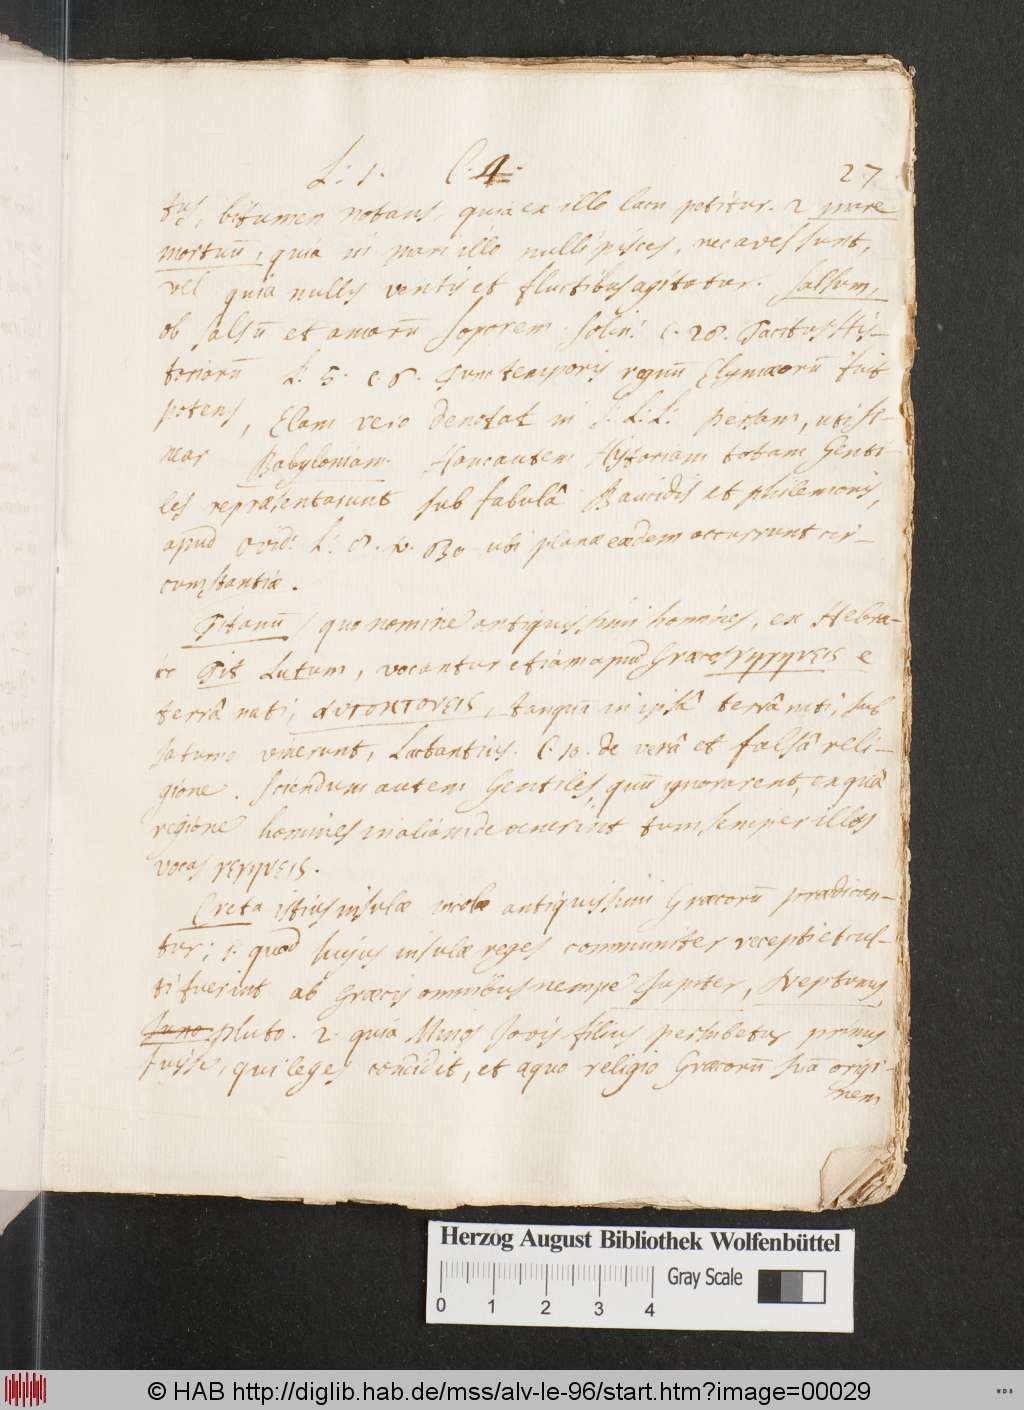 L: 1. C. 4. 27
tus, bitumen notans, quia ex illo lacu petitur. 2 mare
mortuū, quia in mari illo nulli pisces, nec aves sunt,
vel quia nullis ventis et fluctibus agitatur. Salsum,
ob salsū et amarū saporem. Solin: C. 28. Tacitus His-
toriarū L. 5. c. 6. Tum temporis regnū Elymæorū fuit
potens, Elam vero denotat in S: L: L: Persam, uti Si-
near Babyloniam. Hanc autem Historiam totam Genti-
les repræsentarunt sub fabulâ Baucidis et Philemonis,
apud Ovid: L: 8. v. 630 ubi planæ eædem occurrunt cir-
cumstantiæ.
Titanū quo nomine antiquissimi homines, ex Hebræ-
o Tit Lutum, vocantur etiam apud Græcos γηγηνεις e
terrâ nati, αυτοκτονεις, tanquā in ipsâ terrâ nati, sub
saturno vixerunt, Lactantius. C. 10. de verâ et falsâ reli-
gione. Sciendum autem Gentiles, quū ignorarent, ex quâ
regione homines in aliam devenerint tum semper illos
vocas γεγηνεις.
Creta istius insulæ incolæ antiquissimi Græcorū prædican-
tur; 1. quod hujus insulæ reges communiter recepti et cul-
ti fuerint ab Græcis omnibus nempe Jupiter, Neptunus,
Juno Pluto. 2. quia Minos Jovis filius perhibetur primus
fuisse, qui leges condidit, et a quo religio Græcorū suā origi-
nem
Herzog August Bibliothek Wolfenbüttel
Gray Scale
0 1 2 3 4
© HAB http://diglib.hab.de/mss/alv-le-96/start.htm?image=00029